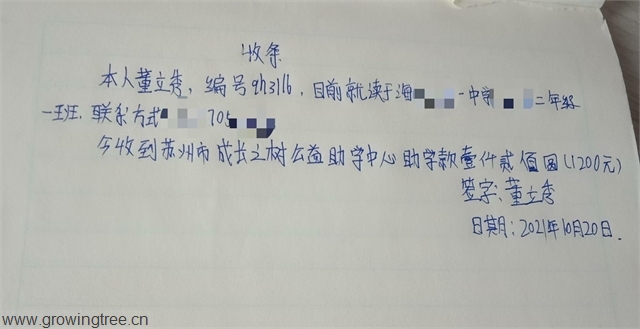 收条
本人董立秀，编号qh3116，目前就读于海 一中学 二年级
一班，联系方式 705
今收到苏州市成长之树公益助学中心助学款壹仟贰佰圆(1200元)
签字：董立秀
日期：2021年10月20日.
www.growingtree.cn